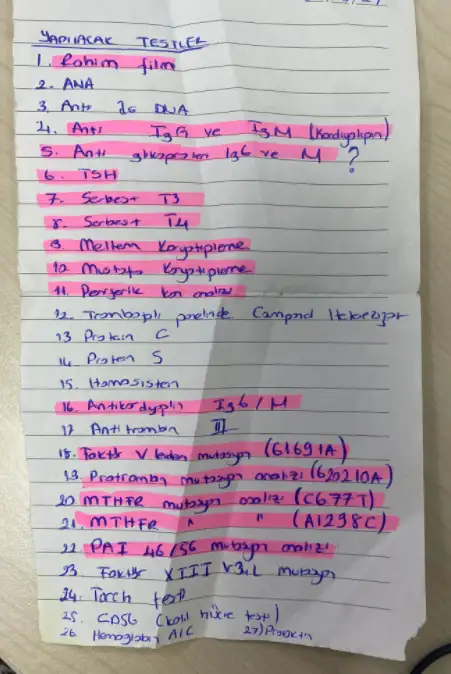 YAPILACAK TESTLER
1. Rahim film
2. ANA
3. Anti ds DNA
4. Anti IgG ve IgM (Kardiyolipin)
5. Anti glikoprotein IgG ve M ?
6. TSH
7. Serbest T3
8. Serbest T4
9. Meltem Karyotipleme
10. Mustafa Karyotipleme
11. Periferik kan analizi
12. Trombofili panelinde
13 Protein C
14. Protein S
15. Homosistein
16. Antikardiyolipin IgG / M
17 Anti trombin III
18. Faktör V leiden mutasyon (G1691A)
19. Protrombin mutasyon analizi (G20210A)
20. MTHFR mutasyon analizi (C677T)
21. MTHFR " " (A1298C)
22. PAI 4G/5G mutasyon analizi
23 Faktör XIII V34L mutasyon
24. Torch testi
25. CD56 (katil hücre testi)
26 Hemoglobin A1C 27) Prolaktin